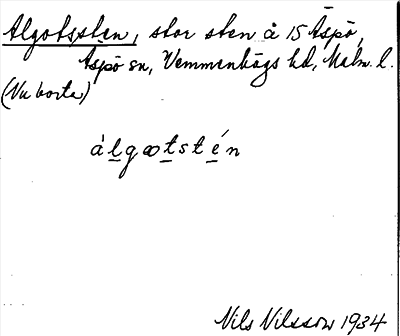 Algotssten, stor sten å 15 Äspö,
Äspö sn, Vemmenhögs hd, Malm. l.
(Nu borta)
àlgotstén
Nils Nilsson 1934